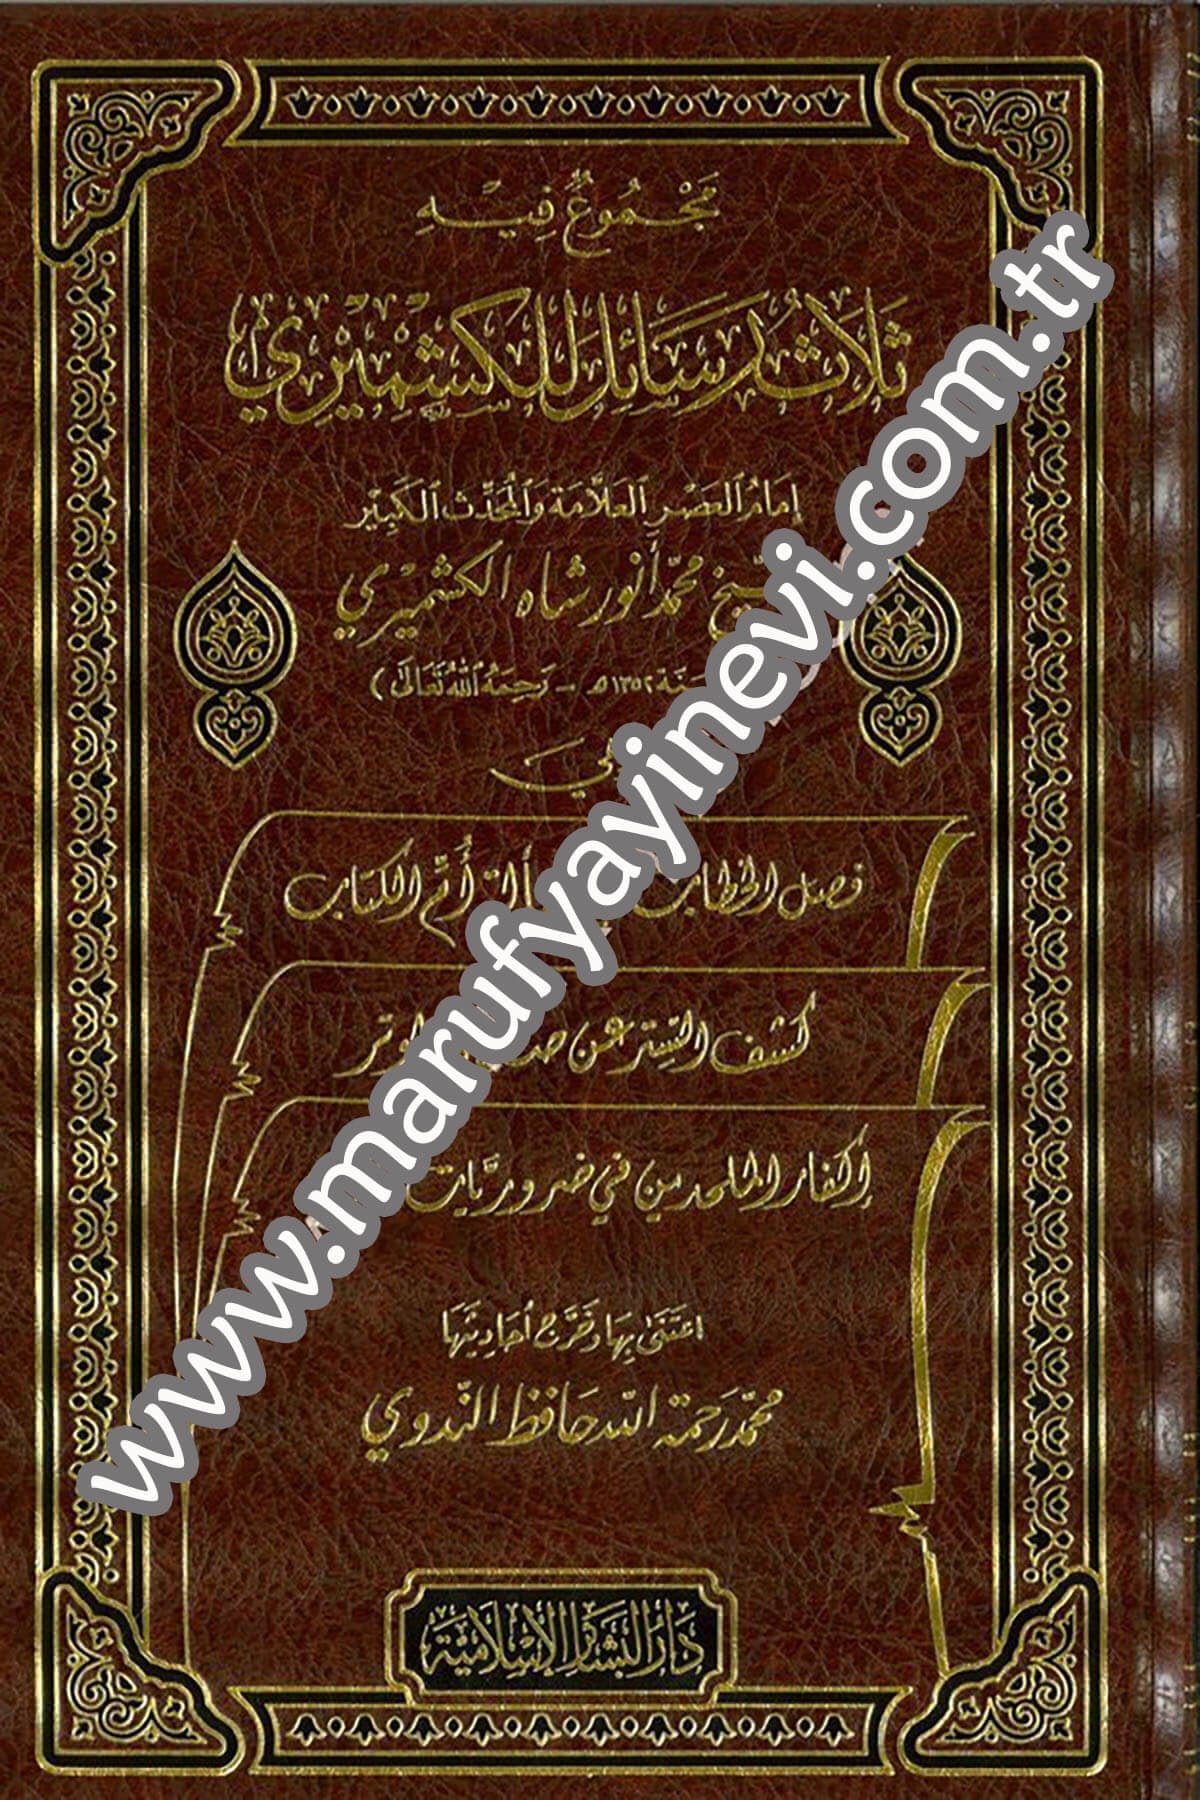 مَجْمُوعٌ فِيْهِ
ثَلَاثُ رَسَائِل لِلكَشْمِيْرِي
إمَامُ العَصْرِ العَلَّامَة وَالمُحَدِّث الكَبِيْر
محمّد أنور شاه الكشميري
سَنَة ١٣٥٢هـ - رَحِمَهُ اللهُ تَعَالَىٰ)
فصل الخطاب أم الكتاب
كشف الستر عن الوتر
إكفار الملحدين في ضروريّات
اعتَنَىٰ بِهَا وَخَرَّجَ أحَادِيثَهَا
محمّد رَحمة الله حَافِظ النّدوي
دَارُ البَشَائِرِ الإِسْلَامِيَّة
www.marufyayinevi.com.tr